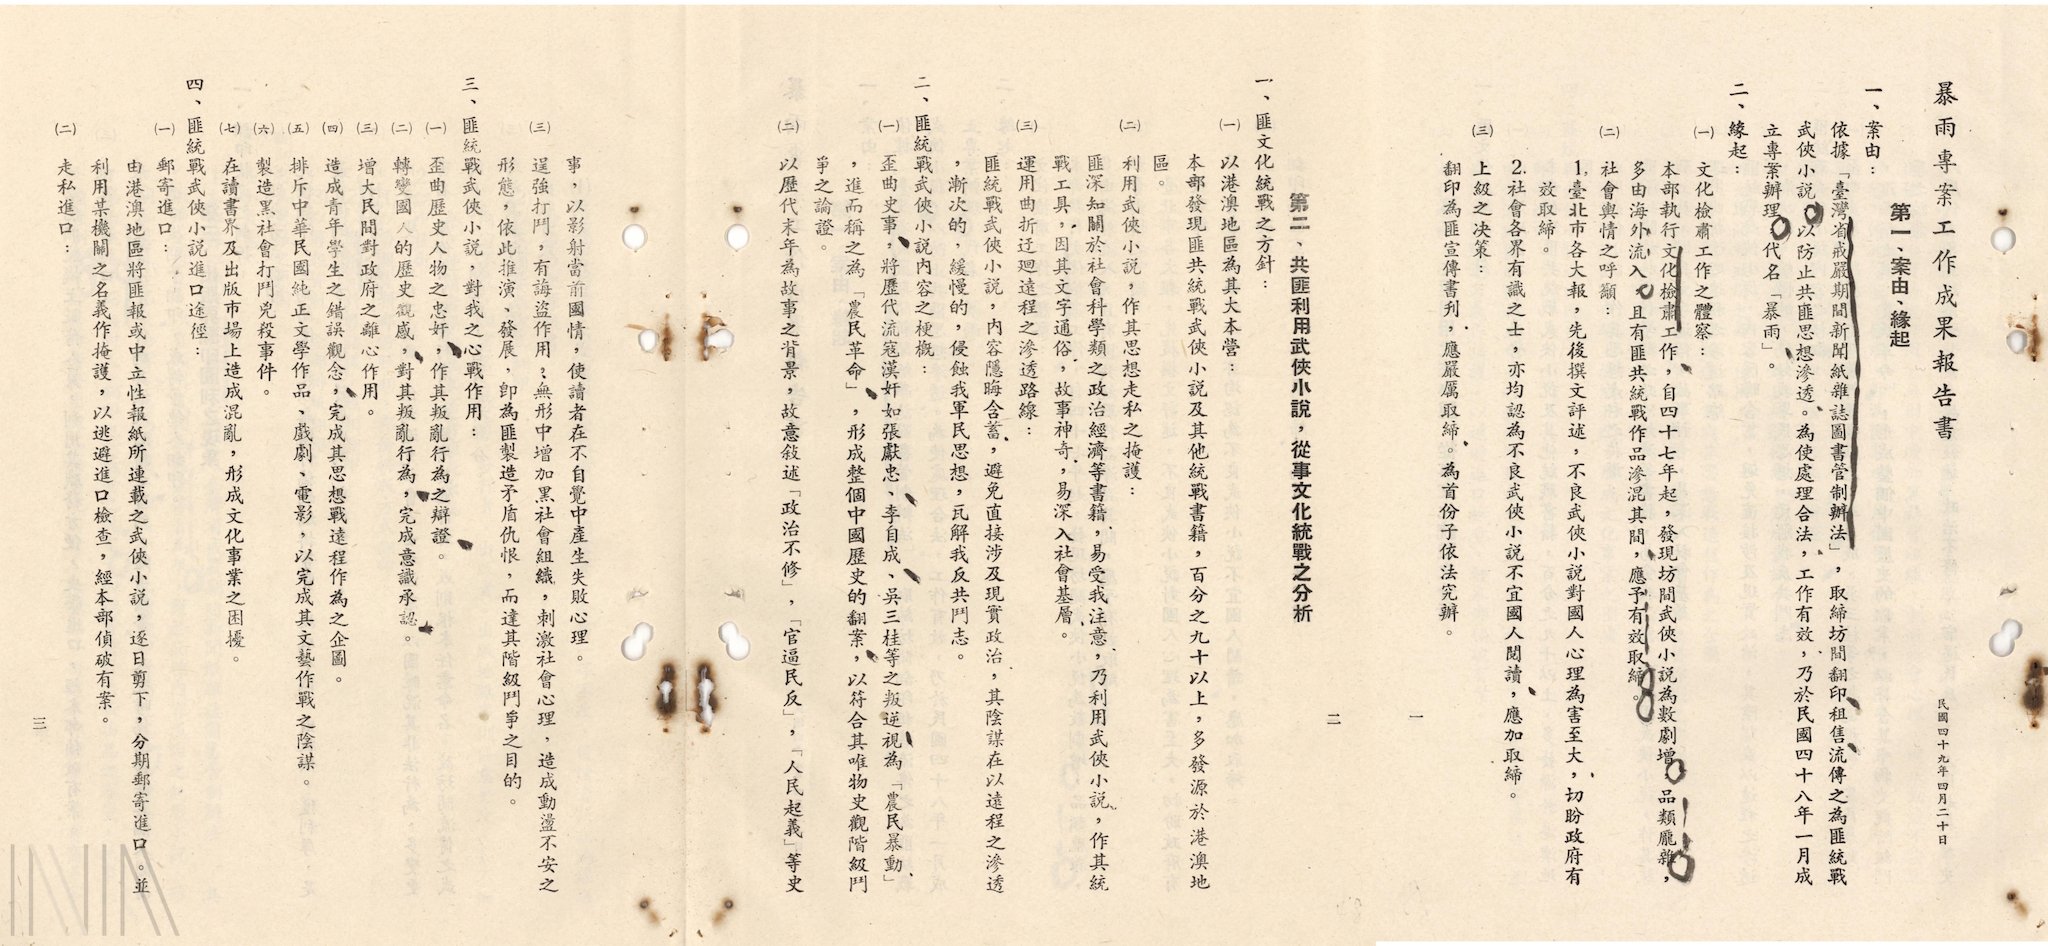 暴雨專案工作成果報告書
民國四十九年四月二十日
第一、案由、緣起
一、案由：
依據「臺灣省戒嚴期間新聞紙雜誌圖書管制辦法」，取締坊間翻印租售流傳之為匪統戰
武俠小說，以防止共匪思想滲透。為使處理合法，工作有效，乃於民國四十八年一月成
立專案辦理，代名「暴雨」。
二、緣起：
㈠文化檢肅工作之體察：
本部執行文化檢肅工作，自四十七年起，發現坊間武俠小說為數劇增，品類龐雜，
多由海外流入，且有匪共統戰作品滲混其間，應予有效取締。
㈡社會輿情之呼籲：
1.臺北市各大報，先後撰文評述，不良武俠小說對國人心理為害至大，切盼政府有
效取締。
2.社會各界有識之士，亦均認為不良武俠小說不宜國人閱讀，應加取締。
㈢上級之決策：
翻印為匪宣傳書刋，應嚴厲取締。為首份子依法究辦。
一
二
第二、共匪利用武俠小說，從事文化統戰之分析
一、匪文化統戰之方針：
㈠以港澳地區為其大本營：
本部發現匪共統戰武俠小說及其他統戰書籍，百分之九十以上，多發源於港澳地
區。
㈡利用武俠小說，作其思想走私之掩護：
匪深知關於社會科學類之政治經濟等書籍，易受我注意，乃利用武俠小說，作其統
戰工具，因其文字通俗，故事神奇，易深入社會基層。
㈢運用曲折迂迴遠程之滲透路線：
匪統戰武俠小說，內容隱晦含蓄，避免直接涉及現實政治，其陰謀在以遠程之滲透
，漸次的，緩慢的，侵蝕我軍民思想，瓦解我反共鬥志。
二、匪統戰武俠小說內容之梗概：
㈠歪曲史事，將歷代流寇漢奸如張獻忠、李自成、吳三桂等之叛逆視為「農民暴動」
，進而稱之為「農民革命」，形成整個中國歷史的翻案，以符合其唯物史觀階級鬥
爭之論證。
㈡以歷代末年為故事之背景，故意敘述「政治不修」，「官逼民反」，「人民起義」等史
事，以影射當前國情，使讀者在不自覺中產生失敗心理。
㈢逞強打鬥，有誨盜作用，無形中增加黑社會組織，刺激社會心理，造成動盪不安之
形態，依此推演、發展，即為匪製造矛盾仇恨，而達其階級鬥爭之目的。
三、匪統戰武俠小說，對我之心戰作用：
㈠歪曲歷史人物之忠奸，作其叛亂行為之辯證。
㈡轉變國人的歷史觀感，對其叛亂行為，完成意識承認。
㈢增大民間對政府之離心作用。
㈣造成青年學生之錯誤觀念，完成其思想戰遠程作為之企圖。
㈤排斥中華民國純正文學作品、戲劇、電影，以完成其文藝作戰之陰謀。
㈥製造黑社會打鬥兇殺事件。
㈦在讀書界及出版市場上造成混亂，形成文化事業之困擾。
四、匪統戰武俠小說進口途徑：
㈠郵寄進口：
由港澳地區將匪報或中立性報紙所連載之武俠小說，逐日剪下，分期郵寄進口。並
利用某機關之名義作掩護，以逃避進口檢查，經本部偵破有案。
㈡走私進口：
三